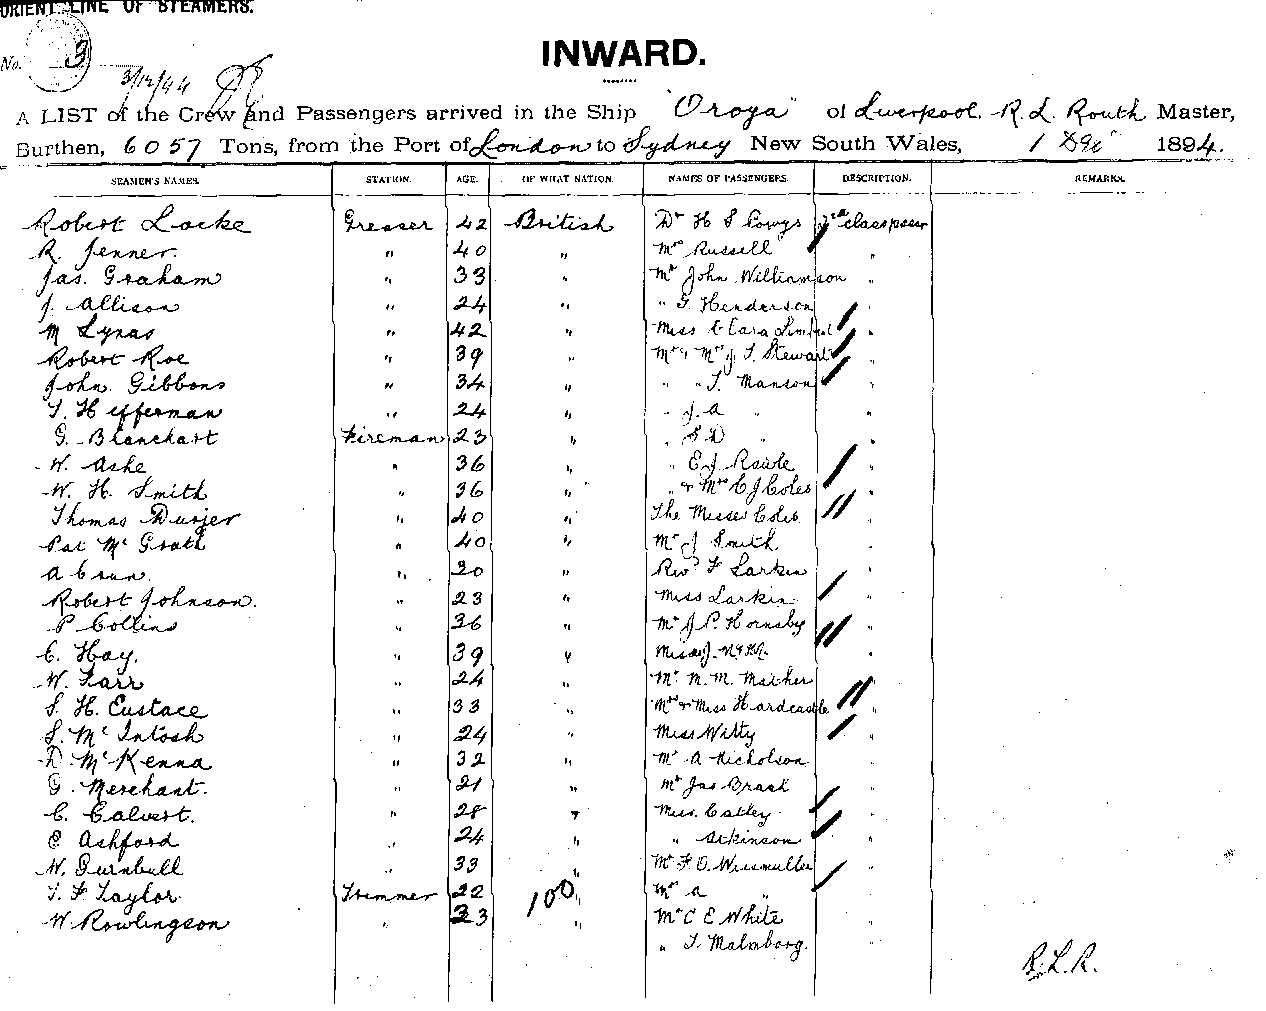 ORIENT LINE OF STEAMERS.
No. 3
3/12/94
INWARD.
A LIST of the Crew and Passengers arrived in the Ship "Oroya" of Liverpool, R. L. Routh Master,
Burthen, 6057 Tons, from the Port of London to Sydney New South Wales, 1 Dec 1894.
SEAMEN'S NAMES. STATION. AGE. OF WHAT NATION. NAMES OF PASSENGERS. DESCRIPTION. REMARKS.
Robert Locke Greaser 42 British Dr H S Powys class psser
R. Jenner. " 40 " Mrs Russell "
Jas. Graham " 33 " Mr John Williamson "
J. Allison " 24 " " G. Henderson
M Lynas " 42 " Miss Clara "
Robert Roe " 39 " Mr & Mrs J. T. Stewart "
John Gibbons " 34 " " " T. Manson "
T. Hefferman " 24 " " J. A " "
G. Blanchart Fireman 23 " " S D "
W. Ashe " 36 " " E J Rawle "
W. H. Smith " 36 " " & Mrs C J Coles "
Thomas " 40 " The Misses Coles "
Pat McGrath " 40 " Mr J Smith "
A " 30 " Revd F Larkin "
Robert Johnson. " 23 " Miss Larkin "
P Collins " 36 " Mr J. P. Hornsby "
C. Hay. " 39 " "
W. " 24 " Mr M. M. Mather "
S. H. Eustace " 33 " Mrs & Miss Hardcastle "
S. McIntosh " 24 " Miss Witty "
D. McKenna " 32 " Mr A Nicholson "
G. Merchant. " 21 " Mr Jas "
C. Calvert. " 28 " Miss "
E Ashford " 24 " " Atkinson "
W. Turnbull " 33 " Mr F. O. Weismuller "
T. F. Taylor Trimmer 22 " Mrs A " "
100
W Rowlingson " 23 " Mr C E White "
" T. Malmborg. "
R.L.R.